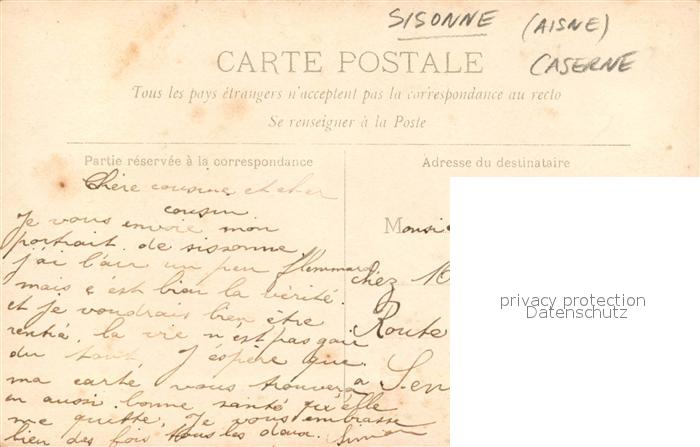 SISONNE (AISNE)
CASERNE
CARTE POSTALE
Tous les pays étrangers n'acceptent pas la correspondance au recto
Se renseigner à la Poste
Partie réservée à la correspondance
Adresse du destinataire
Chère cousine et cher
cousin
Je vous envoie mon
portrait de sissonne
j'ai l'air un peu flemmard
mais c'est bien la vérité.
et je voudrais bien être
rentré, la vie n'est pas gaie
du tout, J'éspère que
ma carte vous trouvera
en aussi bonne santé qu'elle
me quitte. Je vous embrasse
bien des fois tous les deux.
Monsi
chez M
Route
a Sen
privacy protection
Datenschutz